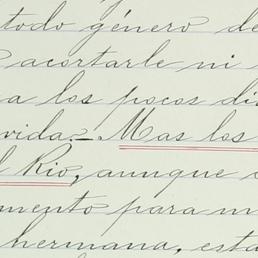 todo género de
acortarle ni
a los pocos di
vida.- Mas los
l Rio, aunque
mento para m
hermana, esta